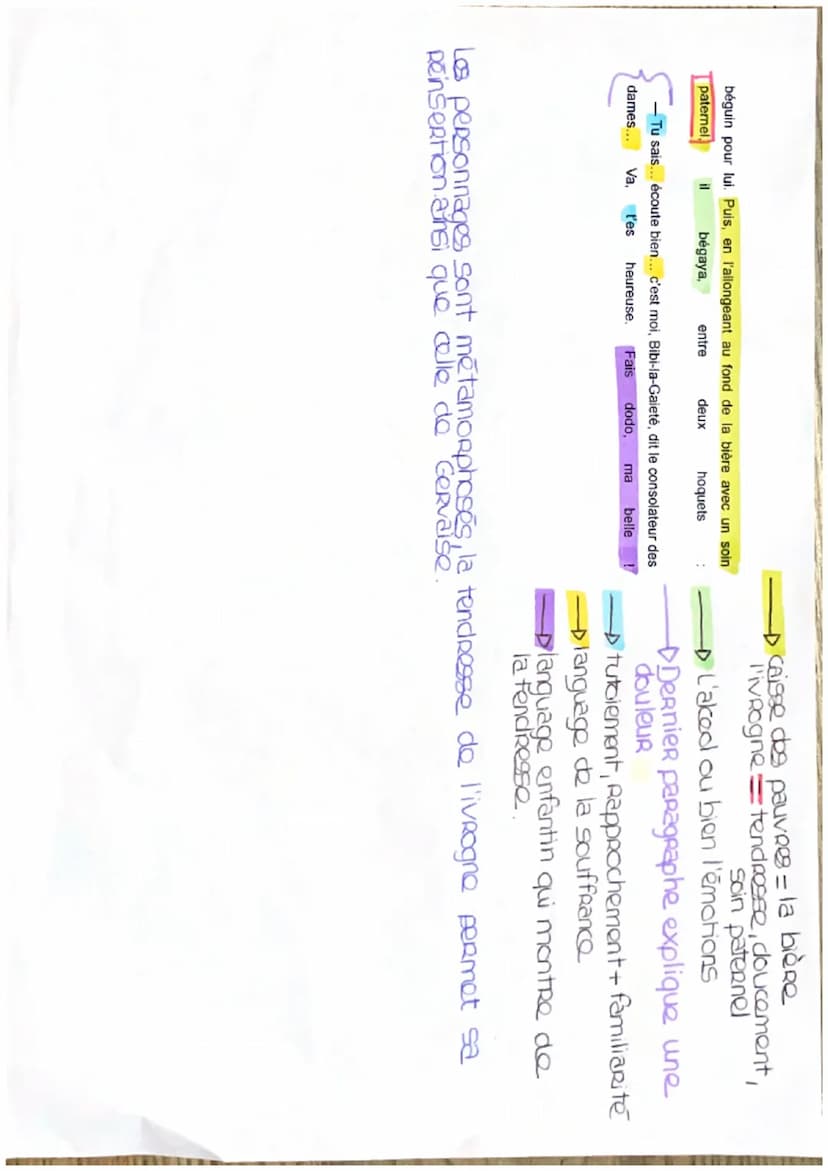 béguin pour lui. Puis, en l'allongeant au fond de la bière avec un soin
paternel, il bégaya, entre deux hoquets :
— Tu sais... écoute bien... c'est moi, Bibi-la-Gaieté, dit le consolateur des
dames... Va, t'es heureuse. Fais dodo, ma belle !
caisse des pauvres = la bière
l'ivrogne = tendresse, doucement,
soin paternel
L'alcool ou bien l'émotions
Dernier paragraphe explique une
douleur
tutoiement, Rapprochement + familiarité
language de la souffrance
language enfantin qui montre de
la tendresse.
Les personnages sont métamorphosés, la tendresse de l'ivrogne permet sa
réinsertion ainsi que celle de Gervaise.